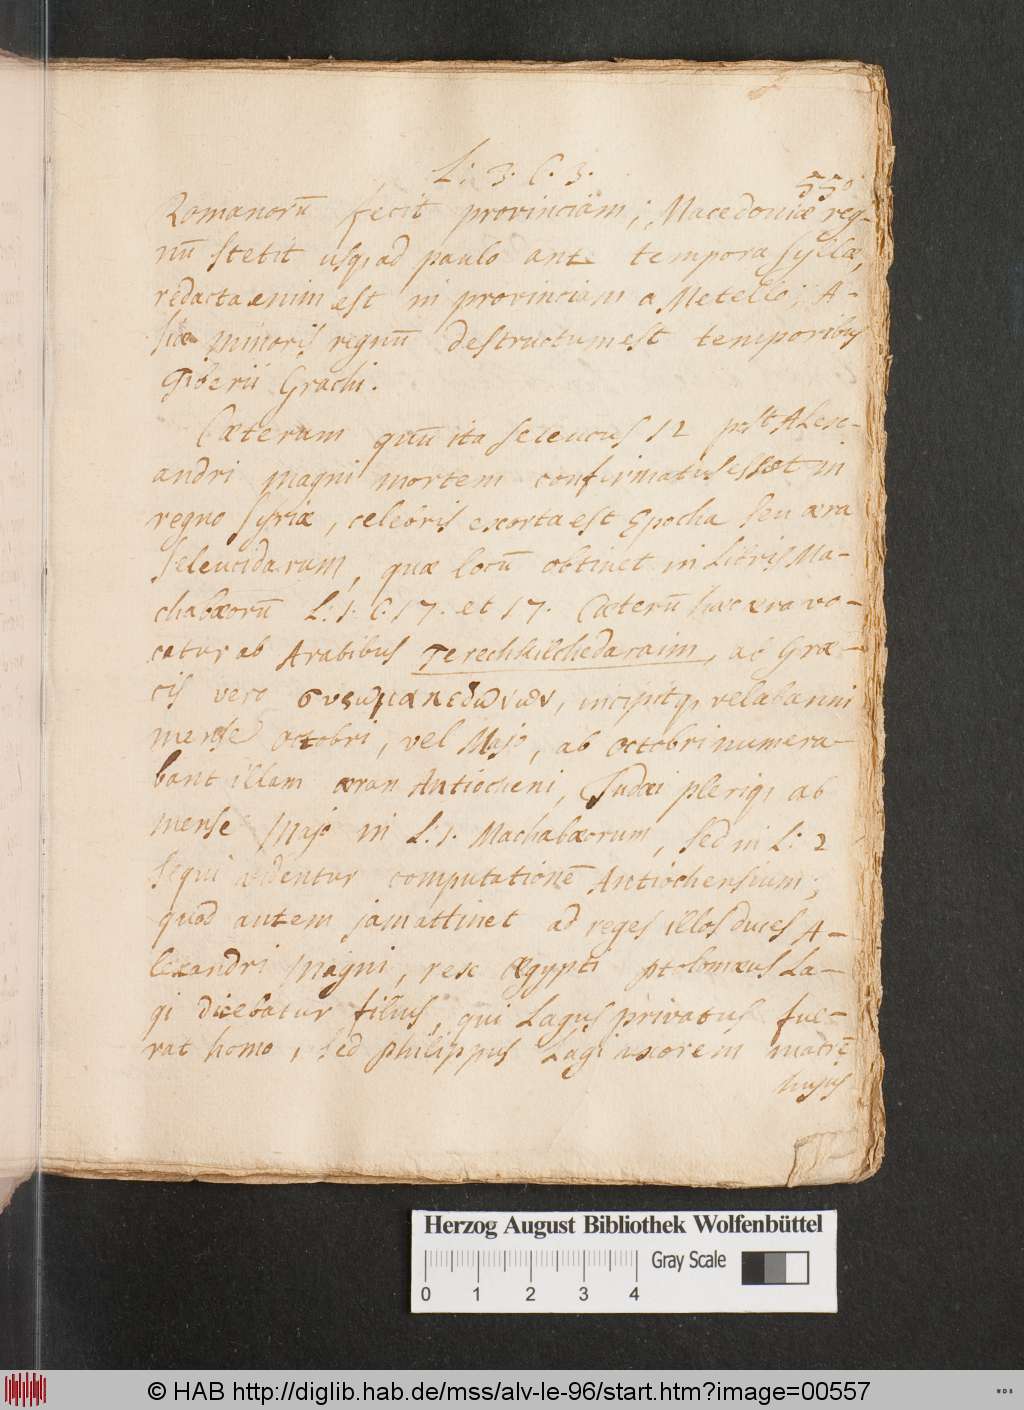 L: 3. C. 3.
550
Romanorū fecit provinciam; Macedoniæ reg-
nū stetit usq; ad paulo ante tempora Syllæ,
redacta enim est in provinciam a Metello; A-
siæ minoris regnū destructum est temporibus
Tiberii Grachi.
Cæterum quū ita Seleucus 12 post Alex-
andri Magni mortem confirmatus esset in
regno Syriæ, celebris exorta est Epocha seu æra
Seleucidarum, quæ locū obtinet in Libris Ma-
chabæorū L: 1. C. 17. et 17. Cæterū hæc æra vo-
catur ab Arabibus Terechkilchedaraim, ab Græ-
cis vero
, incipitq; vel ab anni
mense octobri, vel Majo, ab octobri numera-
bant illam æram Antiocheni, Judæi pleriq; ab
mense Majo in L: 1. Machabæorum, sed in L: 2
sequi videntur computationē Antiochensium;
quod autem jam attinet ad reges illos duces A-
lexandri Magni, rex Ægypti Ptolomæus La-
gi dicebatur filius, qui Lagus privatus fue-
rat homo, sed Philippus Lagi uxorem matrē
hujus
Herzog August Bibliothek Wolfenbüttel
Gray Scale
0 1 2 3 4
© HAB http://diglib.hab.de/mss/alv-le-96/start.htm?image=00557